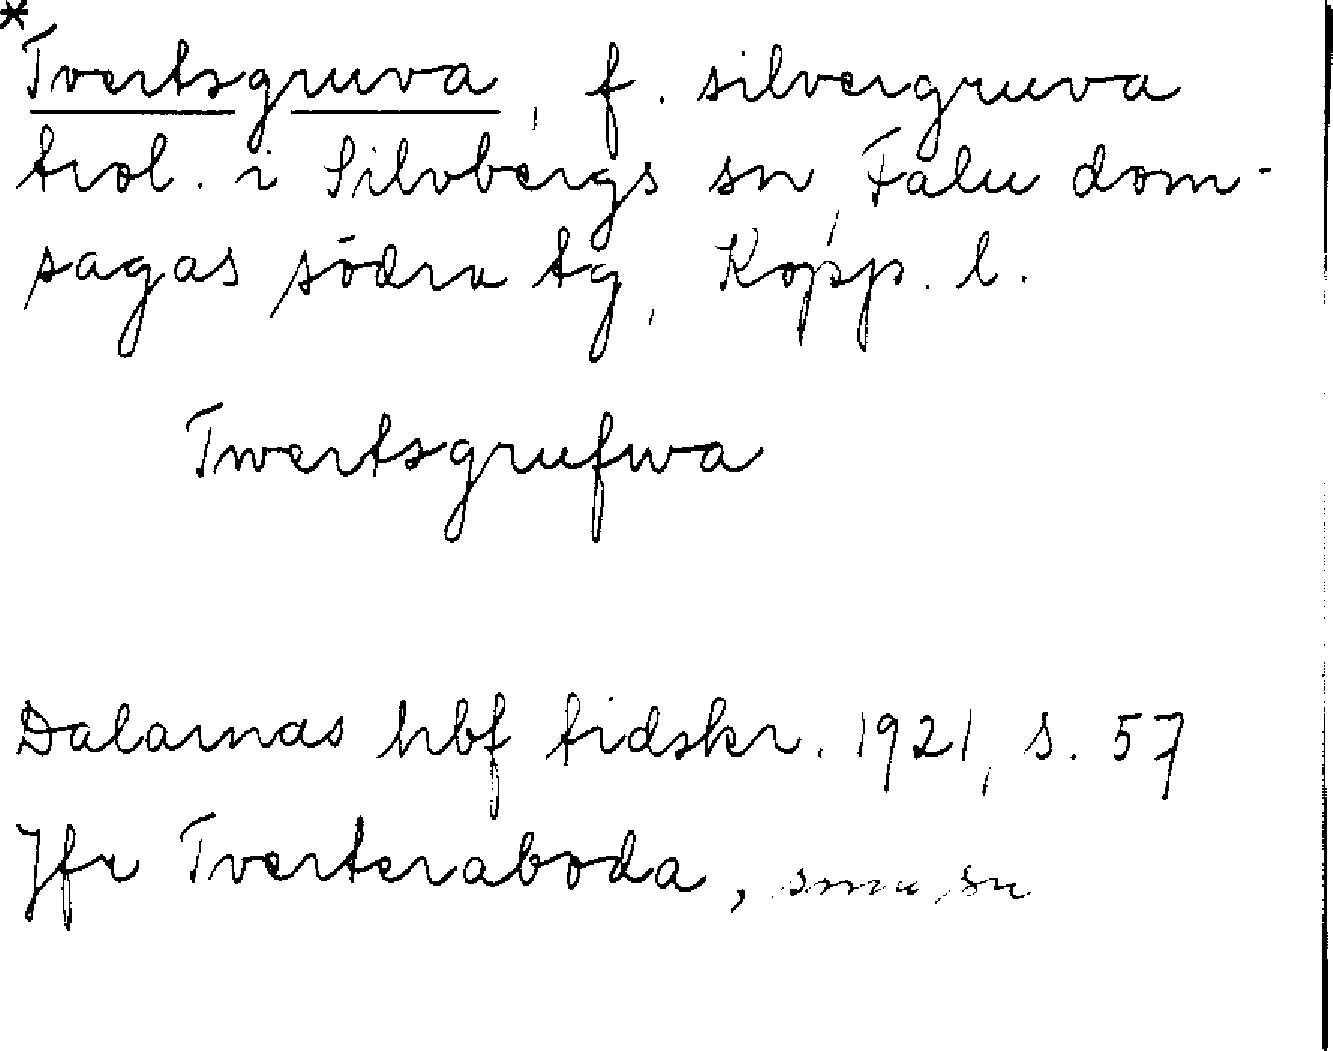 *
Tvertsgruva, f. silvergruva
trol. i Silvbergs sn, Falu dom-
sagas södra tg, Kopp. l.
Twertsgrufwa
Dalarnas hbf tidskr. 1921, s. 57
Jfr Tverteraboda, smu sn